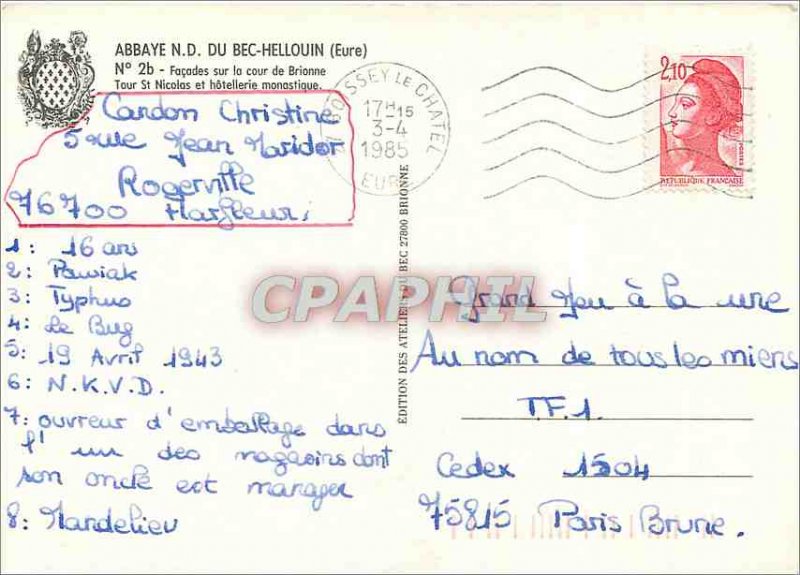 ABBAYE N.D. DU BEC-HELLOUIN (Eure)
N° 2b - Façades sur la cour de Brionne
Tour St Nicolas et hôtellerie monastique.
Cardon Christine
5 rue Jean Maridor
Rogerville
76700 Harfleur.
1: 16 ans
2: Pawiak
3: Typhus
4: Le Bug
5: 19 Avril 1943
6: N.K.V.D.
7: ouvreur d'emballage dans
l'un des magasins dont
son oncle est manager
8: Mandelieu
EDITION DES ATELIERS DU BEC 27800 BRIONNE
OSSEY LE CHATEL
17H15
3-4
1985
EURE
2,10
POSTES
REPUBLIQUE FRANÇAISE
Grand Jeu à la une
Au nom de tous les miens
TF.1.
Cedex 1504
75815 Paris Brune.
CPAPHIL